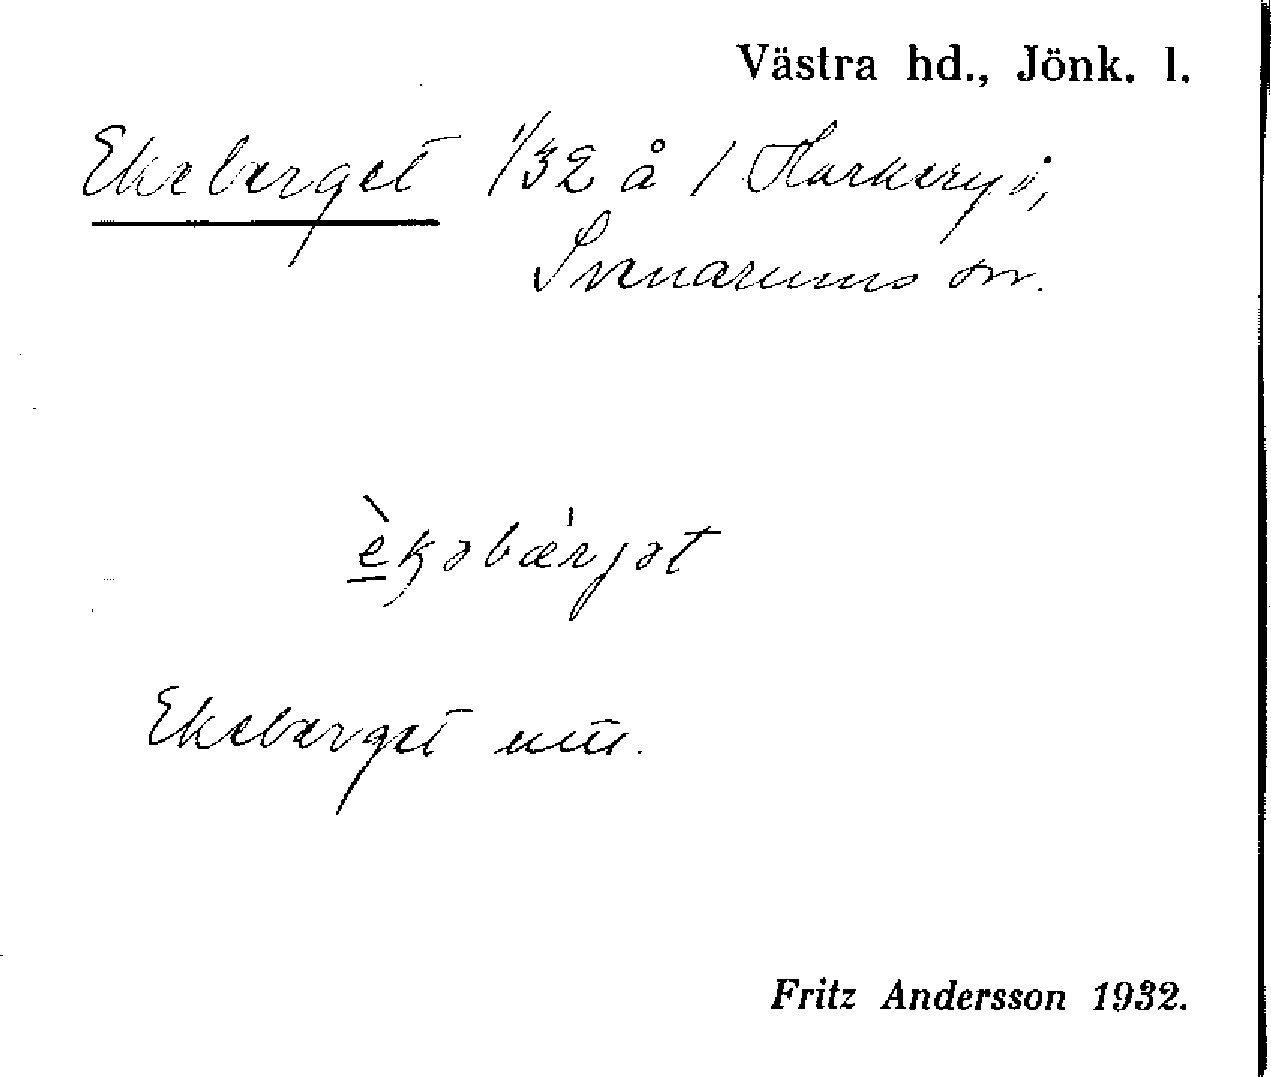 Västra hd., Jönk. l.
Ekeberget 1/32 å 1 Harkeryd,
Svenarums sn.
èkəbærjət
Ekeberget utt.
Fritz Andersson 1932.